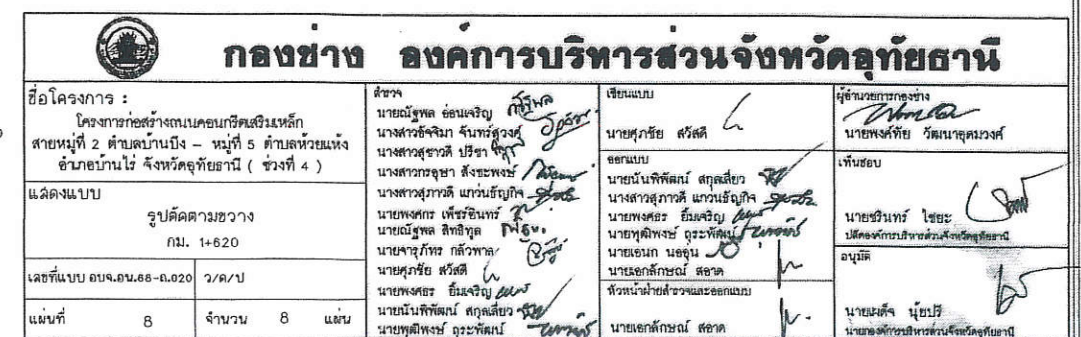 กองช่าง องค์การบริหารส่วนจังหวัดอุทัยธานี
ชื่อโครงการ :
โครงการก่อสร้างถนนคอนกรีตเสริมเหล็ก
สายหมู่ที่ 2 ตำบลบ้านบึง - หมู่ที่ 5 ตำบลห้วยแห้ง
อำเภอบ้านไร่ จังหวัดอุทัยธานี ( ช่วงที่ 4 )
แสดงแบบ
รูปตัดตามขวาง
กม. 1+620
เลขที่แบบ อบจ.อน.68-ถ.020
ว/ด/ป
แผ่นที่ 8
จำนวน 8 แผ่น
สำรวจ
นายณัฐพล อ่อนเจริญ
นางสาวอัจจิมา จันทร์สุวงศ์
นางสาวสุชาวดี ปรีชา
นางสาวกรอุษา สังขะพงษ์
นางสาวสุภาวดี แกวนธัญกิจ
นายพงศกร เพ็ชรอินทร์
นายณัฐพล สิทธิทูล
นายจารุภัทร กล้วพาล
นายศุภชัย สวัสดี
นายพงศธร ยิ้มเจริญ
นายนันพิพัฒน์ สกุลเลี่ยว
นายพุฒิพงษ์ ถุระพัฒน์
เขียนแบบ
นายศุภชัย สวัสดี
ออกแบบ
นายนันพิพัฒน์ สกุลเลี่ยว
นางสาวสุภาวดี แกวนธัญกิจ
นายพงศธร ยิ้มเจริญ
นายพุฒิพงษ์ ถุระพัฒน์
นายเอนก นออุ่น
นายเอกลักษณ์ สอาด
หัวหน้าฝ่ายสำรวจและออกแบบ
นายเอกลักษณ์ สอาด
ผู้อำนวยการกองช่าง
นายพงค์ทัย วัฒนาอุดมวงศ์
เห็นชอบ
นายชรินทร์ ไชยะ
ปลัดองค์การบริหารส่วนจังหวัดอุทัยธานี
อนุมัติ
นายเผด็จ นุ้ยปรี
นายกองค์การบริหารส่วนจังหวัดอุทัยธานี